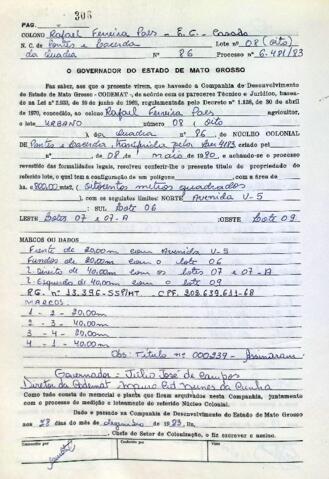 PAG. 306
COLONO Rafael Ferreira Paes - E.C. Casado
N. C. de Pontes e Lacerda Lote nº 08 (oito)
da Quadra Nº 86 Processo nº 6.421/83
O GOVERNADOR DO ESTADO DE MATO GROSSO
Faz saber, aos que o presente virem, que havendo a Companhia de Desenvolvimento
do Estado de Mato Grosso - CODEMAT -, de acôrdo com os pareceres Técnico e Jurídico, baseados
na Lei nº 2.933, de 20 de junho de 1969, regulamentada pelo Decreto nº 1.138, de 30 de abril
de 1970, concedido, ao colono Rafael Ferreira Paes agricultor,
o lote URBANO número 08 (oito)
da Quadra nº 86, do NÚCLEO COLONIAL
de Pontes e Lacerda, transcrita pela criado pelo
nº de 08 de maio de 1980, e achando-se o processo
revestido das formalidades legais, resolveu conferir-lhe o presente título de propriedade do
referido lote, o qual tem a configuração de um polígono, com a área de
ha 800,00 mts2, (oitocentos metros quadrados
), com os seguintes limites: NORTE Avenida V-5
SUL: Lote 06
LESTE Lotes 07 e 07-A ;OESTE Lote 09
MARCOS OU DADOS
Frente de 20,00m com Avenida V-5
Fundos de 20,00m com o lote 06
L. Direito de 40,00m com os lotes 07 e 07-A
L. Esquerdo de 40,00m com o lote 09
RG. nº 13.396-SSP/MT. CPF. 208.639.611-68
MARCOS:
1 - 2 - 20,00m
2 - 3 - 40,00m
3 - 4 - 20,00m
4 - 1 - 40,00m
Obs: Título nº 000239 - Assinaram
Governador = Júlio José de Campos
Diretor da Codemat da Cunha
Como tudo consta do memorial e planta que foram arquivados nesta Companhia, juntamente
com o processo de medição e loteamento do referido Núcleo Colonial.
Dado e passado na Companhia de Desenvolvimento do Estado de Mato Grosso
aos 28 dias do mês de dezembro de 1983. Eu,
Chefe do Setor de Colonização, o fiz escrever e assino.